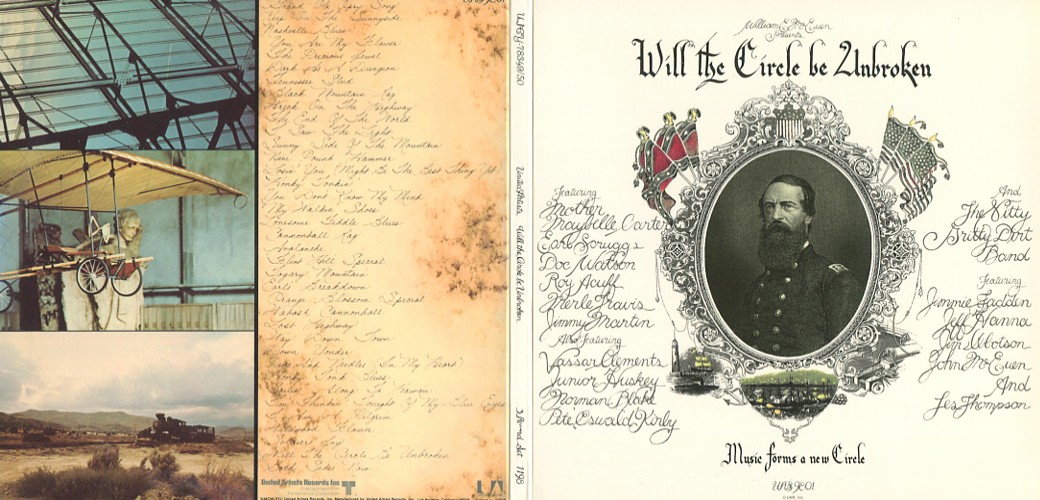 Grand Ole Opry Song
Keep On The Sunnyside
Nashville Blues
You Are My Flower
The Precious Jewel
Dark As A Dungeon
Tennessee Stud
Black Mountain Rag
Wreck On The Highway
The End Of The World
I Saw The Light
Sunny Side Of The Mountain
Nine Pound Hammer
Losin' You Might Be The Best Thing Yet
Honky Tonkin'
You Don't Know My Mind
My Walkin' Shoes
Lonesome Fiddle Blues
Cannonball Rag
Avalanche
Flint Hill Special
Togary Mountain
Earl's Breakdown
Orange Blossom Special
Wabash Cannonball
Lost Highway
Way Down Town
Down Yonder
Pins And Needles In My Heart
Honky Tonk Blues
Sailin' Along To Hawaii
I'm Thinking Tonight Of My Blue Eyes
Pilgrim
Wildwood Flower
Soldier's Joy
Will The Circle Be Unbroken
Both Sides Now
United Artists Records Inc
UA
United Artists Will the Circle be Unbroken
3 Record Set 1198
William E. McEuen
Presents
Will the Circle be Unbroken
Featuring
Mother
Maybelle Carter
Earl Scruggs
Doc Watson
Roy Acuff
Merle Travis
Jimmy Martin
Also Featuring
Vassar Clements
Junior Huskey
Norman Blake
Pete Oswald Kirby
And
The Nitty
Gritty Dirt
Band
Featuring
Jimmie Fadden
Jeff Hanna
Jim Ibbotson
John McEuen
And
Les Thompson
Music forms a new Circle
UAS 9801